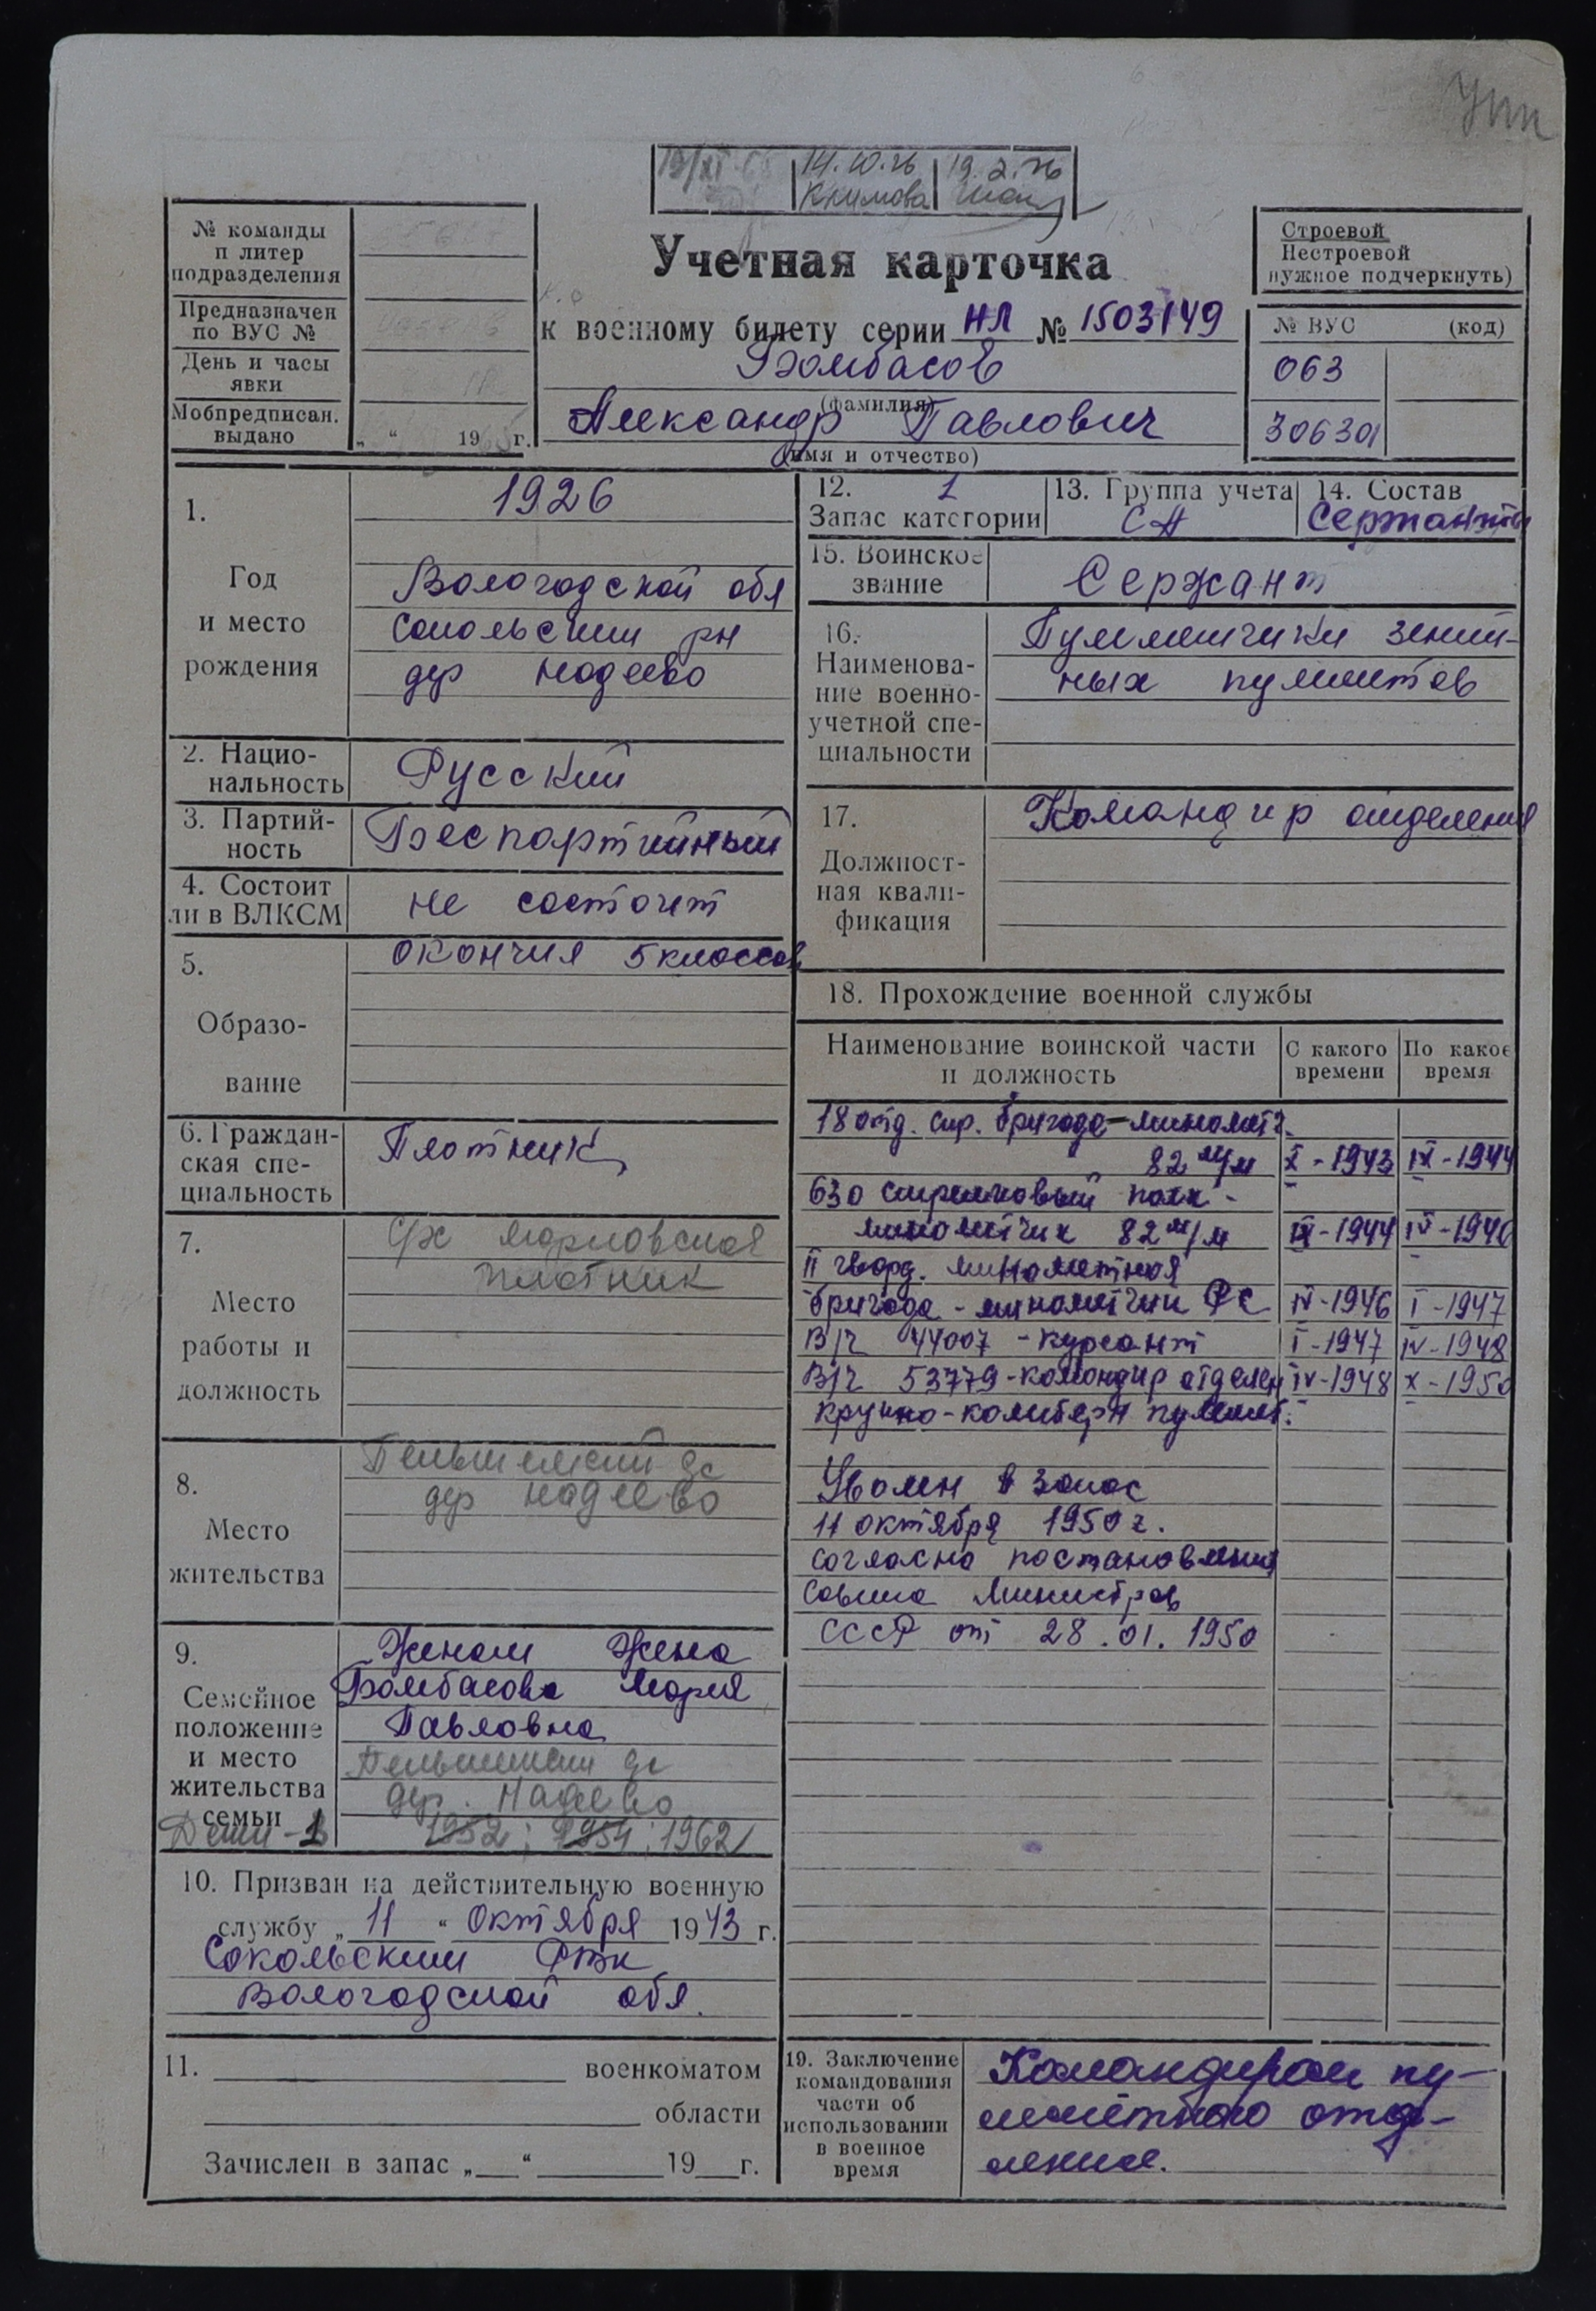 Упп
14.10.76
19.2.76
Климова
№ команды
п литер
подразделения
Предназначен
по ВУС №
День и часы
явки
Мобпредписан.
выдано
„ “ 19 г.
Учетная карточка
к военному билету серии НЛ № 1503149
Бомбасов
(фамилия)
Александр Павлович
(имя и отчество)
Строевой
Нестроевой
нужное подчеркнуть)
№ ВУС (код)
063
306301
1.
Год
и место
рождения
1926
Вологодской обл
Сокольский рн
дер Надеево
2. Нацио-
нальность
Русский
3. Партий-
ность
Беспартийный
4. Состоит
ли в ВЛКСМ
не состоит
5.
Образо-
вание
окончил 5 классов
6. Граждан-
ская спе-
циальность
Плотник
7.
Место
работы и
должность
плотник
8.
Место
жительства
дер Надеево
9.
Семейное
положение
и место
жительства
семьи
Женат Жена
Бомбасова Мария
Павловна
дер. Надеево
Дети - 1
1952; 1954; 1962
10. Призван на действительную военную
службу „ 11 “ Октября 1943 г.
Сокольским РВК
Вологодской обл.
11. военкоматом
области
Зачислен в запас „ “ 19 г.
12. 1
Запас категории
13. Группа учета
СА
14. Состав
Сержанты
15. Воинское
звание
Сержант
16.
Наименова-
ние военно-
учетной спе-
циальности
Пулеметчики зенит-
ных пулеметов
17.
Должност-
ная квали-
фикация
Командир отделения
18. Прохождение военной службы
Наименование воинской части
и должность
С какого
времени
По какое
время
18 отд. стр. бригада - минометч.
82 м/м X - 1943 IX - 1944
630 стрелковый полк -
минометчик 82 м/м IX - 1944 IV - 1946
II гвард. минометная
бригада - минометчик РС IV - 1946 I - 1947
В/ч 44007 - курсант I - 1947 IV - 1948
В/ч 53779 - командир отделен IV - 1948 X - 1950
крупно-калиберн пулемет.
Уволен в запас
11 октября 1950 г.
согласно постановления
Совета Министров
СССР от 28.01.1950
19. Заключение
командования
части об
использовании
в военное
время
Командиром пу-
леметного отде-
ления.